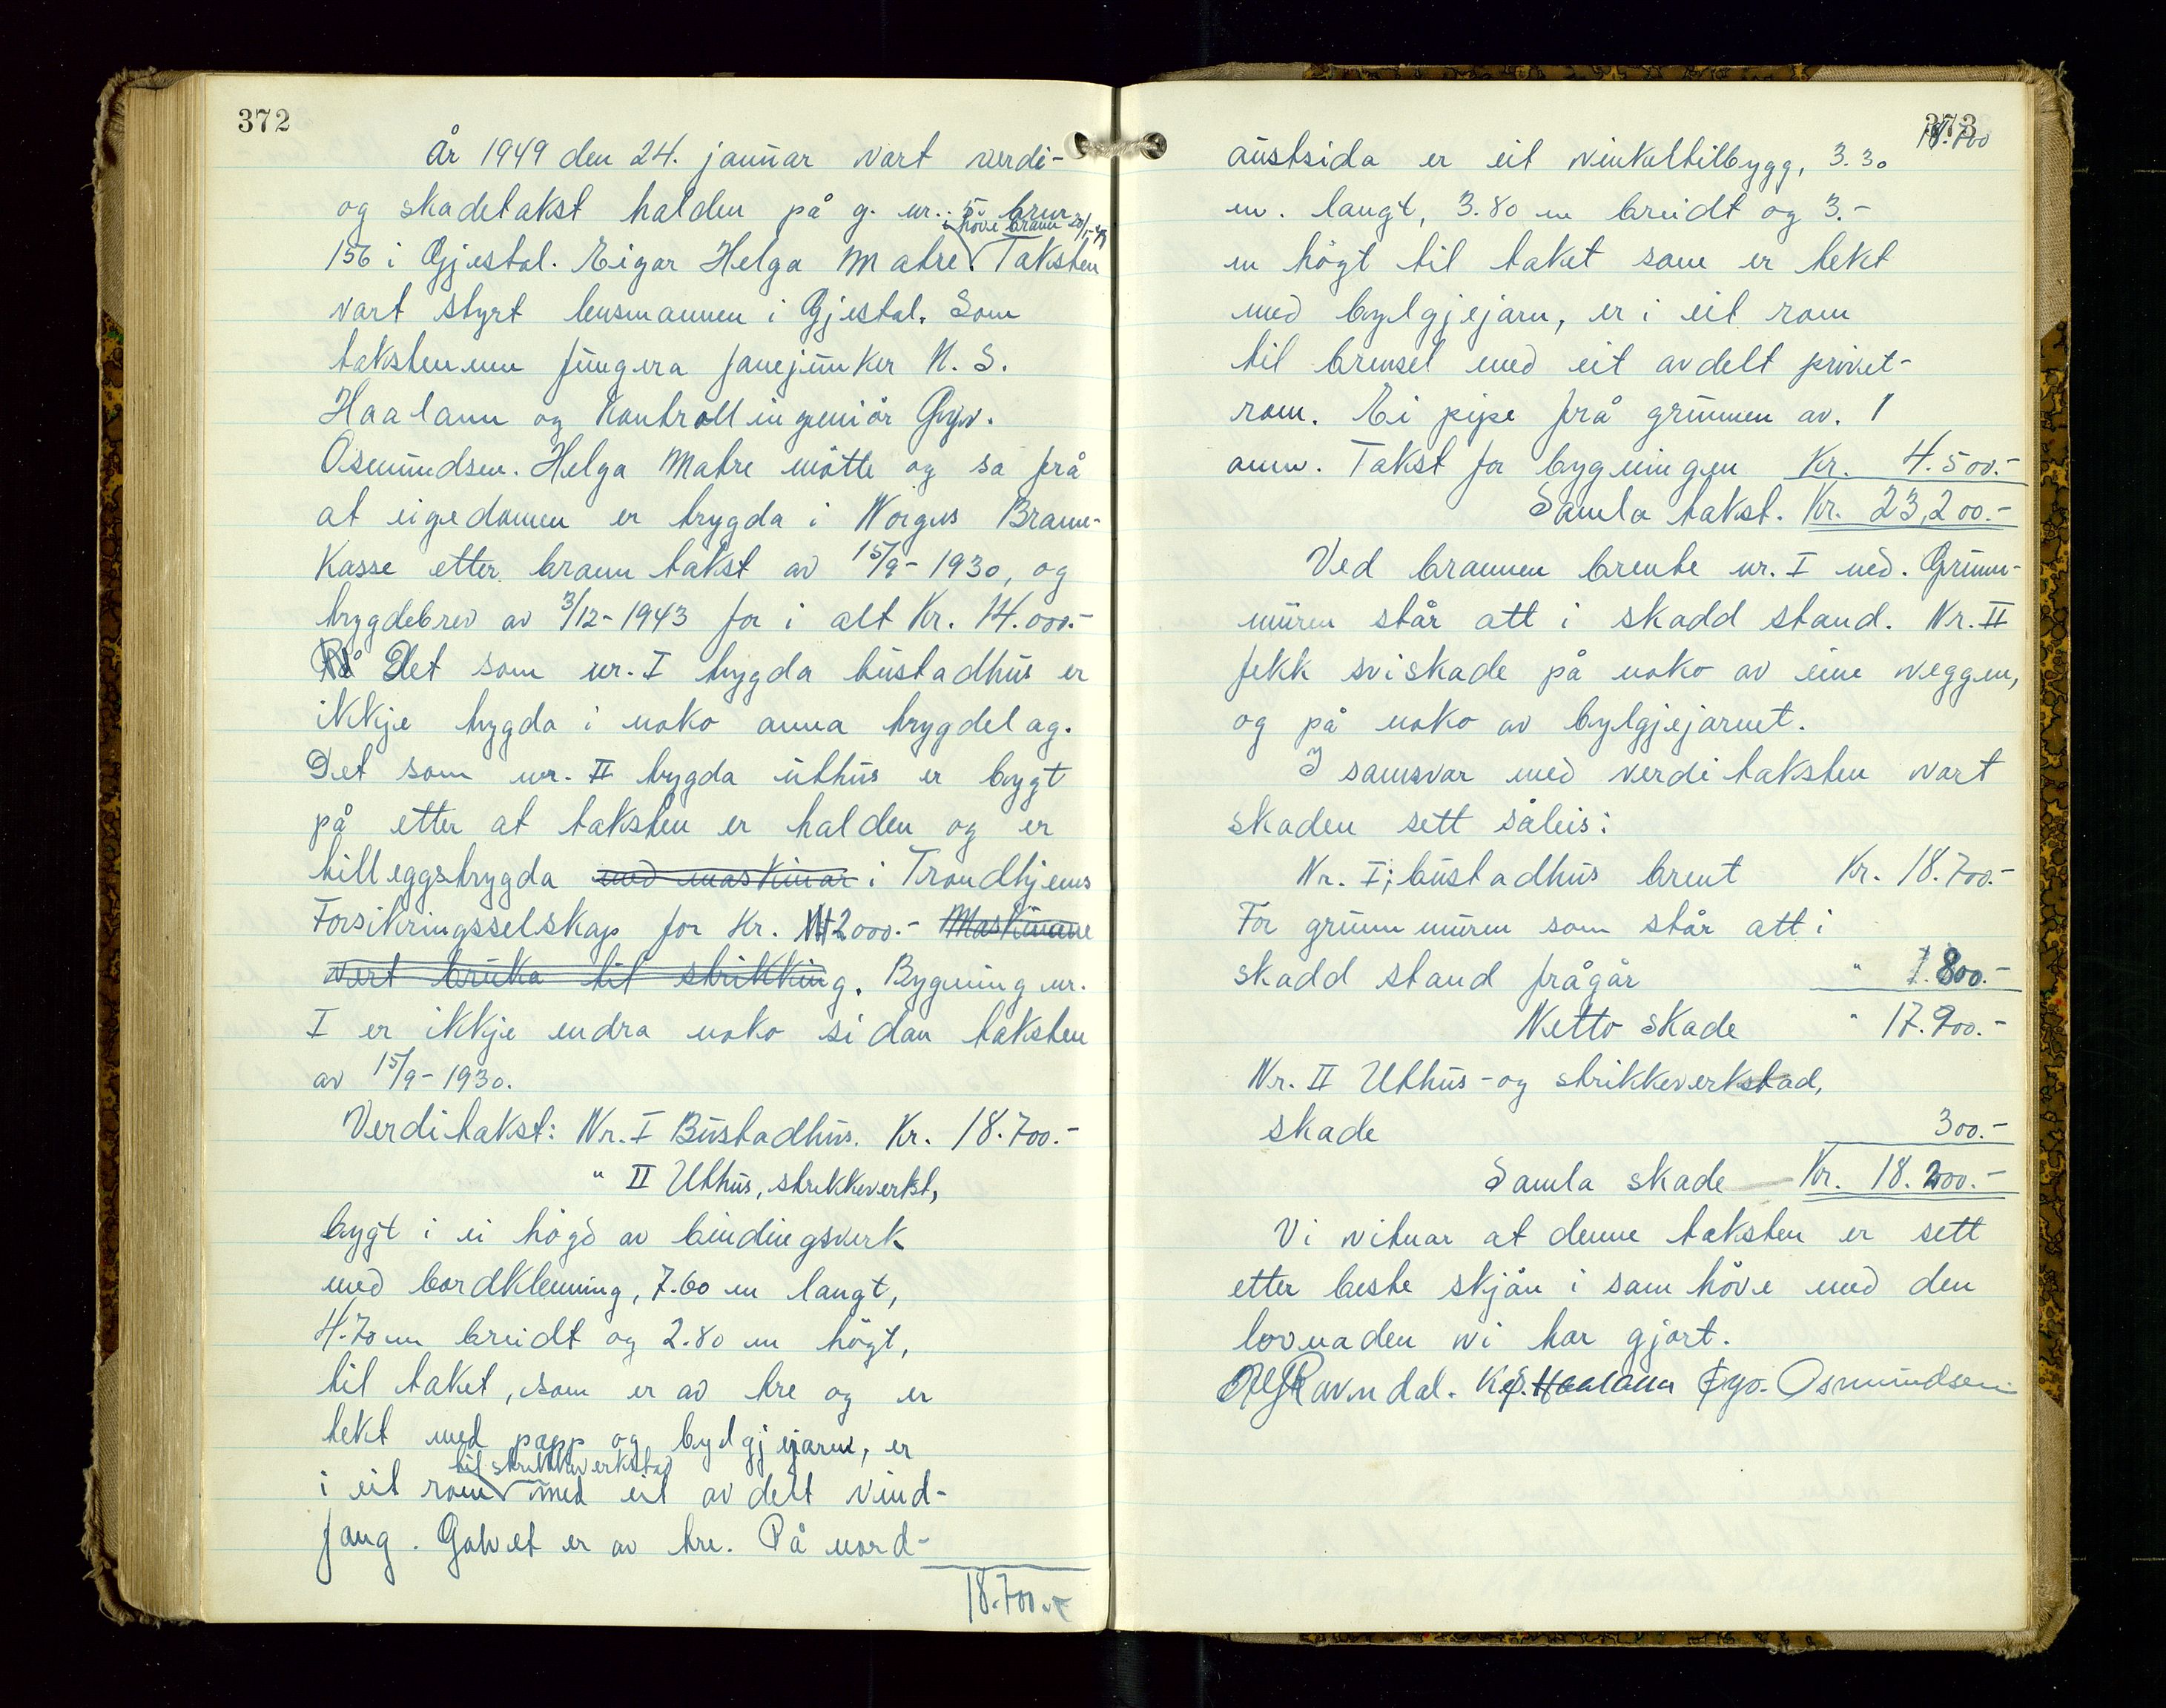 372
År 1949 den 24. januar vart verdi-
og skadetakst halden på g. nr. 5 brnr
i høve brann 20/1-49
156 i Gjestal. Eigar Helga Matre. Taksten
vart styrt lensmannen i Gjestal. Som
takstmenn fungera fanejunker K. S.
Haaland og kontrollingeniør Gyv.
Osmundsen. Helga Matre møtte og sa frå
at eigedomen er trygda i Norges Brann-
kasse etter brann takst av 15/9-1930, og
trygdebrev av 3/12-1943 for i alt Kr. 14.000.-
På Det som nr. I trygda bustadhus er
ikkje trygda i noko anna trygdelag.
Det som nr. II trygda uthus er bygt
på etter at taksten er halden og er
tilleggstrygda med maskinar i Trondhjems
Forsikringsselskap for Kr. 2000.- Maskinane
vert bruka til strikking. Bygning nr.
I er ikkje endra noko sidan taksten
av 15/9-1930.
Verditakst: Nr. I Bustadhus. Kr. 18.700.-
" II Uthus, strikkeverkst,
bygt i ei høgd av bindingsverk
med bordkledning, 7.60 m langt,
4.70 m breidt og 2.80 m høgt,
til taket, som er av tre og er
tekt med papp og bylgjejarn, er
til strikkeverkstad
i eit rom med eit avdelt vind-
fang. Golvet er av tre. På nord-
18.700.-
373
18.700
austsida er eit vinkeltilbygg, 3.30
m. langt, 3.80 m breidt og 3.-
m høgt til taket som er tekt
med bylgjejarn, er i eit rom
til brensel med eit avdelt privet-
rom. Ei pipe frå grunnen av. 1
omn. Takst for bygningen Kr. 4.500.-
Samla takst. Kr. 23,200.-
Ved brannen brente nr. I ned. Grunn-
muren står att i skadd stand. Nr. II
fekk sviskade på noko av eine veggen,
og på noko av bylgjejarnet.
I samsvar med verditaksten vart
skaden sett såleis:
Nr. I; bustadhus brent Kr. 18.700.-
For grunnmuren som står att i
skadd stand frågår " 800.-
Netto skade " 17.900.-
Nr. II Uthus- og strikkeverkstad,
skade 300.-
Samla skade Kr. 18.200.-
Vi vitnar at denne taksten er sett
etter beste skjøn i samhøve med den
lovnaden vi har gjort.
Ravndal. K.S. Haaland Gyv. Osmundsen